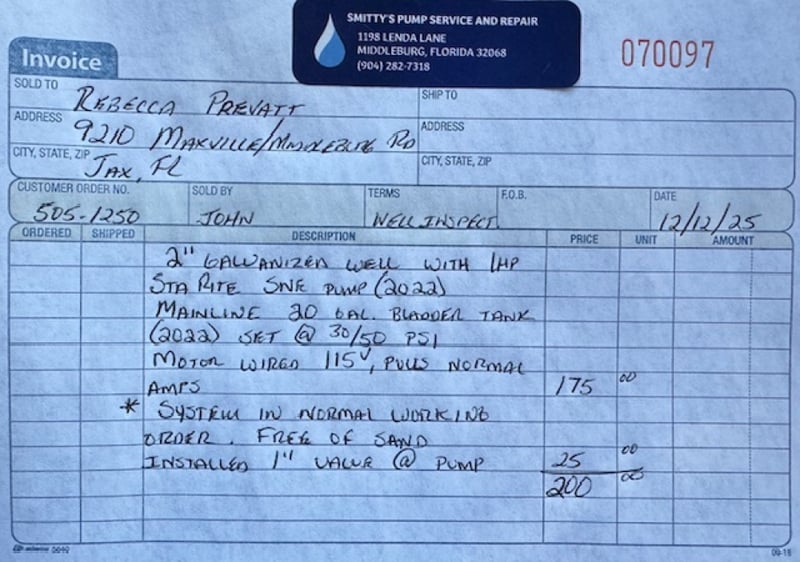 SMITTY'S PUMP SERVICE AND REPAIR
1198 LENDA LANE
MIDDLEBURG, FLORIDA 32068
(904) 282-7318
070097
Invoice
SOLD TO REBECCA PREVATT
SHIP TO
ADDRESS 9210 MAXVILLE/MIDDLEBURG RD
ADDRESS
CITY, STATE, ZIP JAX, FL
CITY, STATE, ZIP
CUSTOMER ORDER NO. SOLD BY TERMS F.O.B. DATE
505-1250 JOHN WELL INSPECT. 12/12/25
ORDERED SHIPPED DESCRIPTION PRICE UNIT AMOUNT
2" GALVANIZED WELL WITH 1HP
STA RITE SNE PUMP (2022)
MAINLINE 20 GAL. BLADDER TANK
(2022) SET @ 30/50 PSI
MOTOR WIRED 115V, PULLS NORMAL
AMPS 175 00
* SYSTEM IN NORMAL WORKING
ORDER. FREE OF SAND
INSTALLED 1" VALVE @ PUMP 25 00
200 00